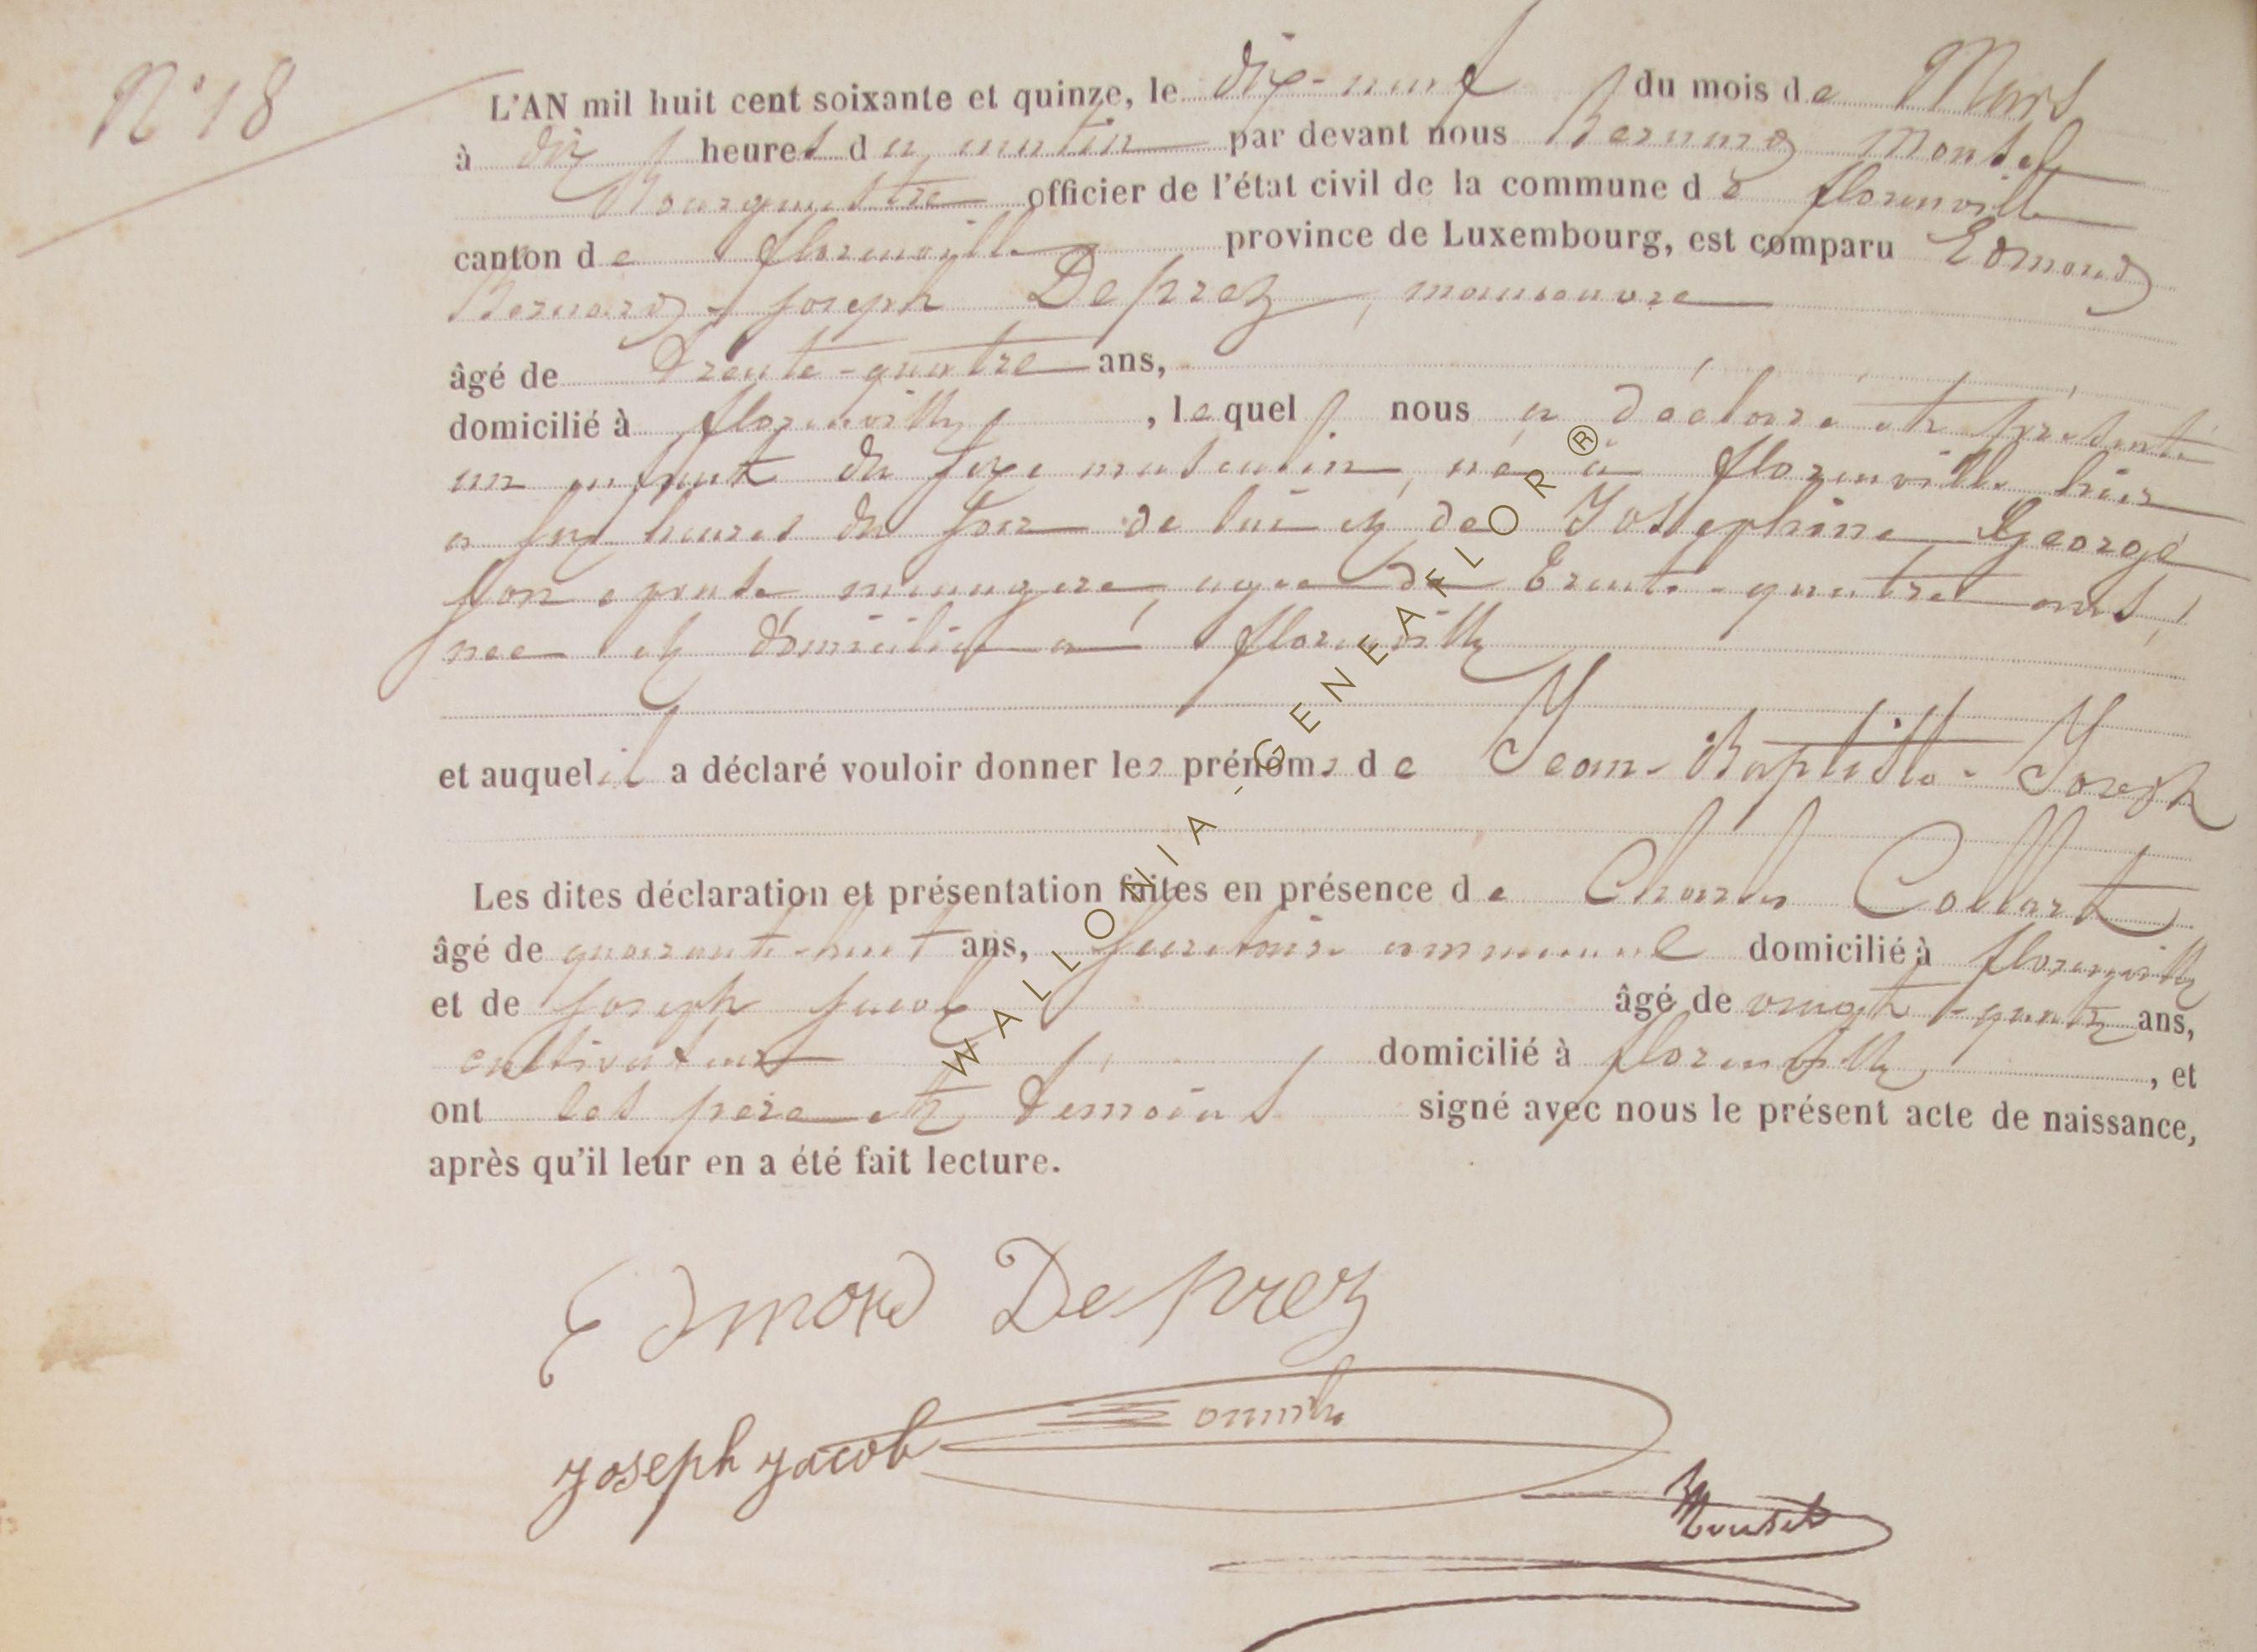 N° 18
L'AN mil huit cent soixante et quinze, le dix-neuf du mois de Mars
à dix heures du matin par devant nous Bernard
Bourgmestre officier de l'état civil de la commune de florenville
canton de florenville province de Luxembourg, est comparu Edmond
Bernard-Joseph Deprez, manoeuvre
âgé de trente-quatre ans,
domicilié à florenville, lequel nous a déclaré et présenté
un enfant du sexe masculin, né à florenville hier
a heures du soir de lui et de Josephine George
son epouse menagere, agee de trente-quatre ans,
nee et domiciliee a florenville
et auquel il a déclaré vouloir donner les prénoms de Jean-Baptiste-Joseph
Les dites déclaration et présentation faites en présence de Charles Collart
âgé de quarante-huit ans, secretaire communal domicilié à florenville
et de Joseph Jacob âgé de vingt- ans,
cultivateur domicilié à florenville, et
ont les pere et temoins signé avec nous le présent acte de naissance,
après qu'il leur en a été fait lecture.
Edmond Deprez
Joseph Jacob
WALLONIA-GENEAFLOR®